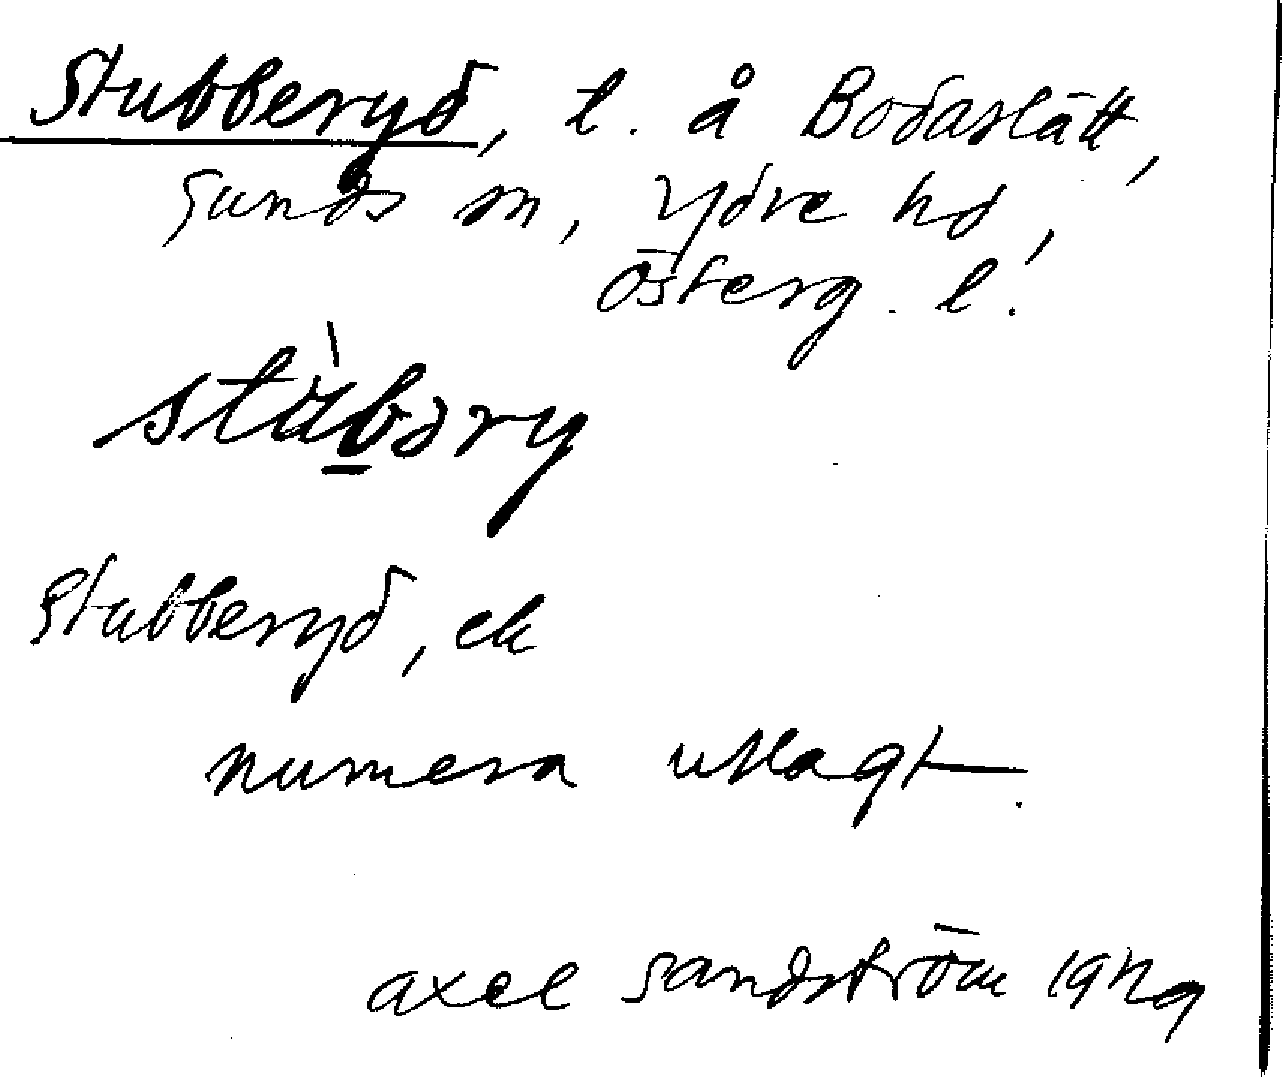 Stubberyd, t. å Bodaslätt,
Sunds sn, Ydre hd,
Österg. l.
stùbəry
Stubberyd, ek
numera utlagt.
Axel Sandström 1929